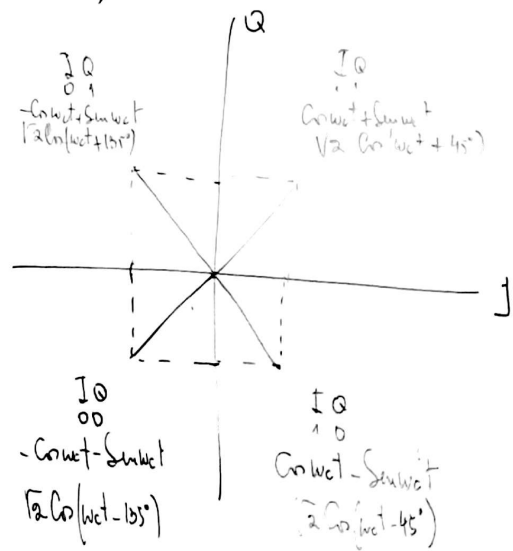 Q
I Q
0 1
-Cosωct+Senωct
√2Cos(ωct+135°)
I Q
1 1
Cosωct+Senωct
√2 Cos(ωct+45°)
I
I Q
00
-Cosωct-Senωct
√2Cos(ωct-135°)
I Q
1 0
Cosωct-Senωct
√2 Cos(ωct-45°)